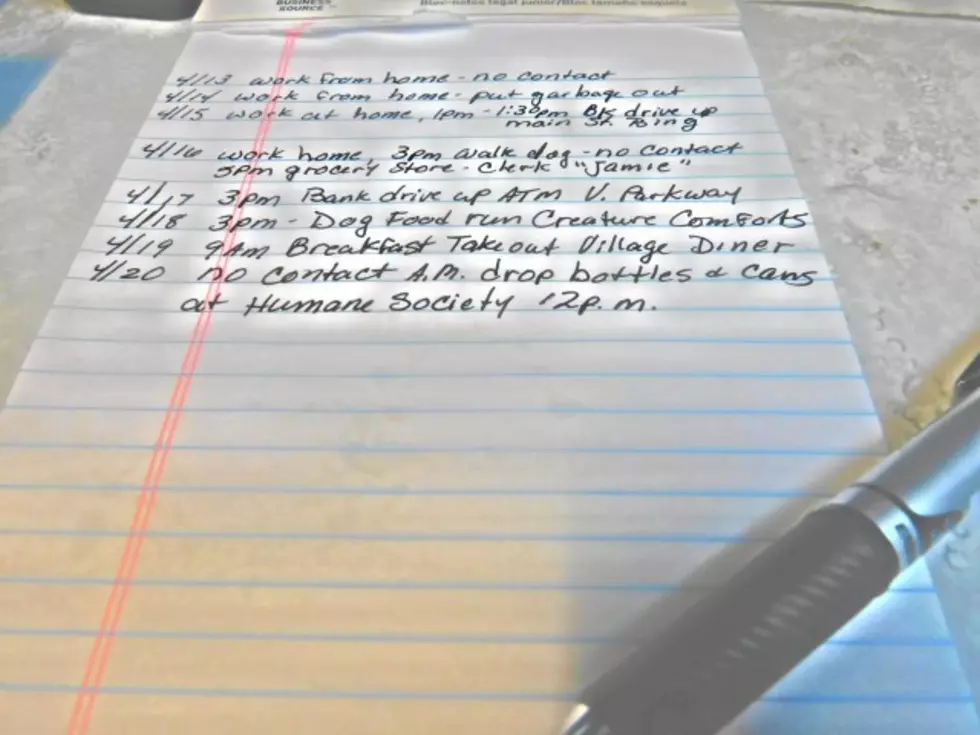 BUSINESS
SOURCE
Bloc-notes légal junior/Bloc tamaño esquela
4/13 work from home - no contact
4/14 work from home - put garbage out
4/15 work at home, 1pm - 1:30pm BK drive up
main St. Bing
4/16 work home, 3pm walk dog - no contact
5pm grocery store - Clerk "Jamie"
4/17 3pm Bank drive up ATM V. Parkway
4/18 3pm - Dog Food run Creature Comforts
4/19 9Am Breakfast Takeout Village Diner
4/20 no contact A.M. drop bottles & cans
at Humane Society 12p.m.